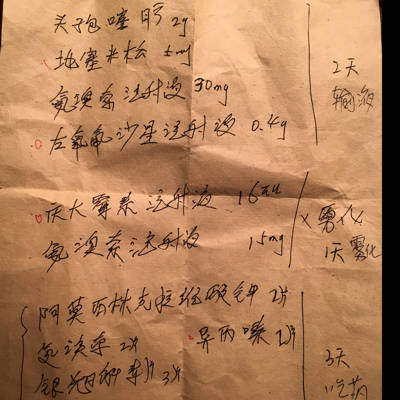 头孢噻肟 2g
地塞米松 5mg
氨溴索注射液 30mg
左氧氟沙星注射液 0.4g
2天
输液
庆大霉素注射液 16万u
氨溴索注射液 15mg
雾化
1天雾化
阿莫西林克拉维酸钾 2片
氨溴索 2片 异丙嗪 1片
片 3片
3天
吃药